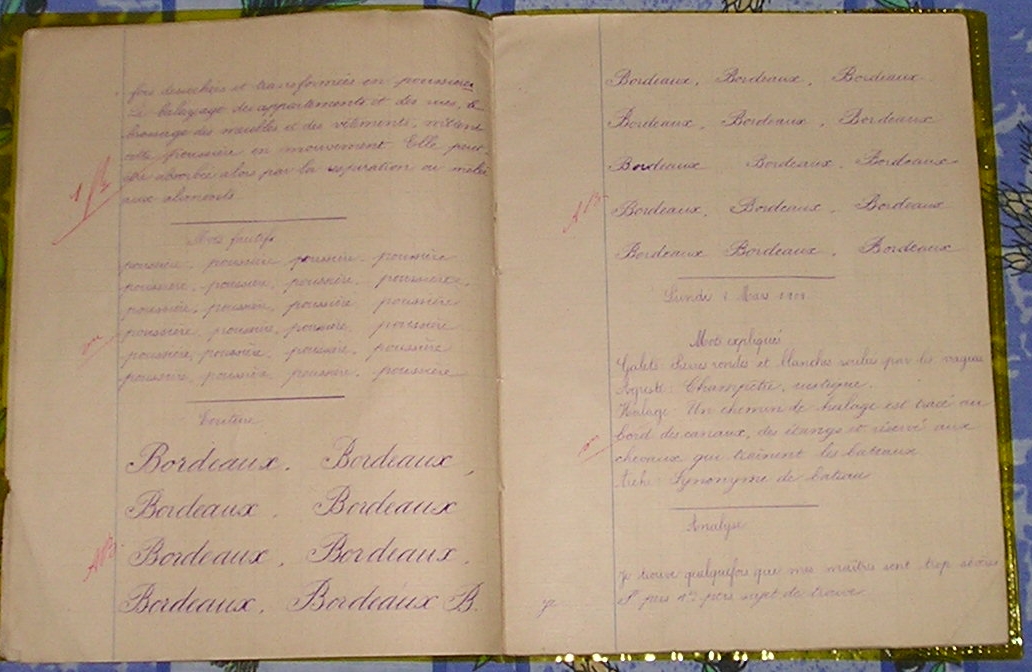 fois desséchés et transformés en poussières.
Le balayage des appartements et des rues, le
brossage des meubles et des vêtements, mettent
cette poussière en mouvement Elle peut
être absorbée alors par la respiration ou mêlée
aux aliments
Mots fautifs
poussière, poussière, poussière, poussière
poussière, poussière, poussière, poussière,
poussière, poussière, poussière poussière
poussière, poussière, poussière, poussière
poussière, poussière, poussière, poussière
poussière, poussière, poussière, poussière
Ecriture
Bordeaux, Bordeaux,
Bordeaux, Bordeaux
AB
Bordeaux, Bordeaux,
Bordeaux, Bordeaux B.
Bordeaux, Bordeaux, Bordeaux
Bordeaux, Bordeaux, Bordeaux
Bordeaux Bordeaux, Bordeaux
AB
Bordeaux, Bordeaux, Bordeaux
Bordeaux Bordeaux, Bordeaux
Lundi Mars
Mots expliqués
Galets: Pierres rondes et blanches roulées par les vagues
Agreste: Champêtre, rustique.
Halage: Un chemin de halage est tracé au
bord des canaux, des étangs et réservé aux
chevaux qui traînent les bateaux
Synonyme de bateau
Analyse
Je trouve quelquefois que mes maîtres sont trop sévères
Je sujet de trouve